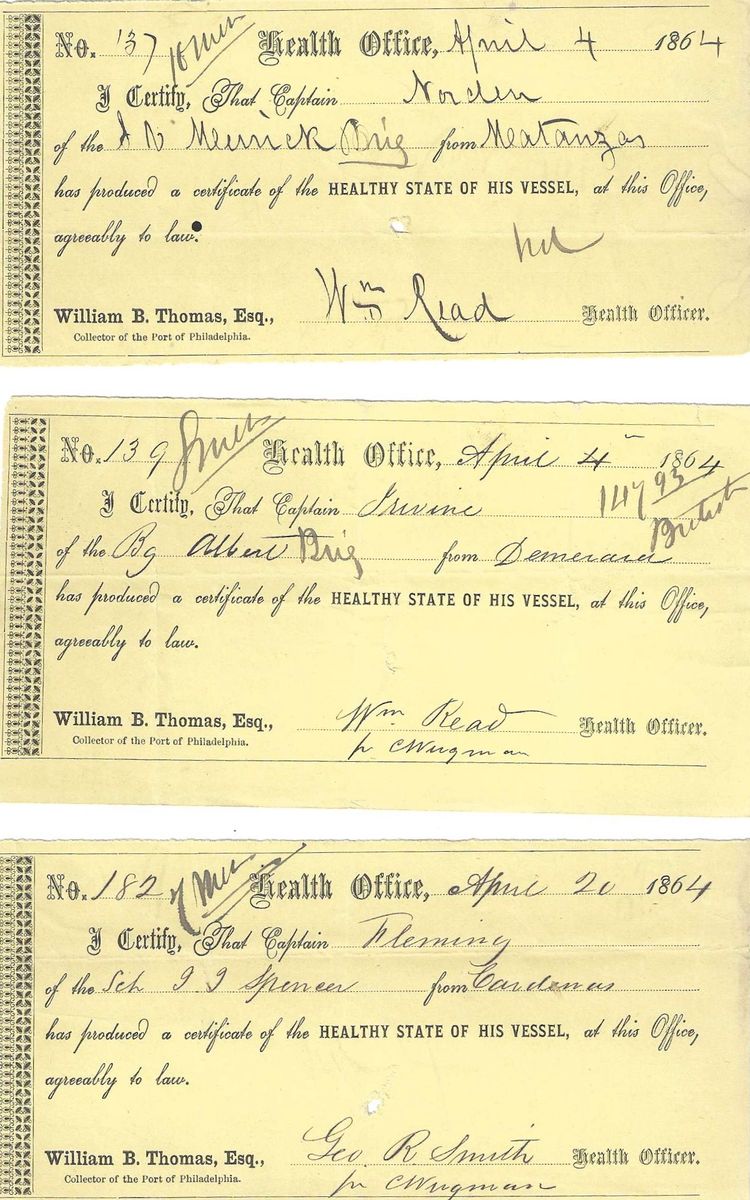 No. 137 10 Men Health Office, April 4 1864
I Certify, That Captain Norden
of the Merrick Brig from Matanzas
has produced a certificate of the HEALTHY STATE OF HIS VESSEL, at this Office,
agreeably to law.
William B. Thomas, Esq., Wm Read Health Officer.
Collector of the Port of Philadelphia.
No. 139 8 men Health Office, April 4 1864
I Certify, That Captain Irvine 147 93
British
of the Bg Albert Brig from Demerara
has produced a certificate of the HEALTHY STATE OF HIS VESSEL, at this Office,
agreeably to law.
William B. Thomas, Esq., Wm. Read Health Officer.
Collector of the Port of Philadelphia. pr
No. 182 7 Men Health Office, April 20 1864
I Certify, That Captain Fleming
of the Sch Spencer from Cardenas
has produced a certificate of the HEALTHY STATE OF HIS VESSEL, at this Office,
agreeably to law.
William B. Thomas, Esq., Geo. R Smith Health Officer.
Collector of the Port of Philadelphia. pr